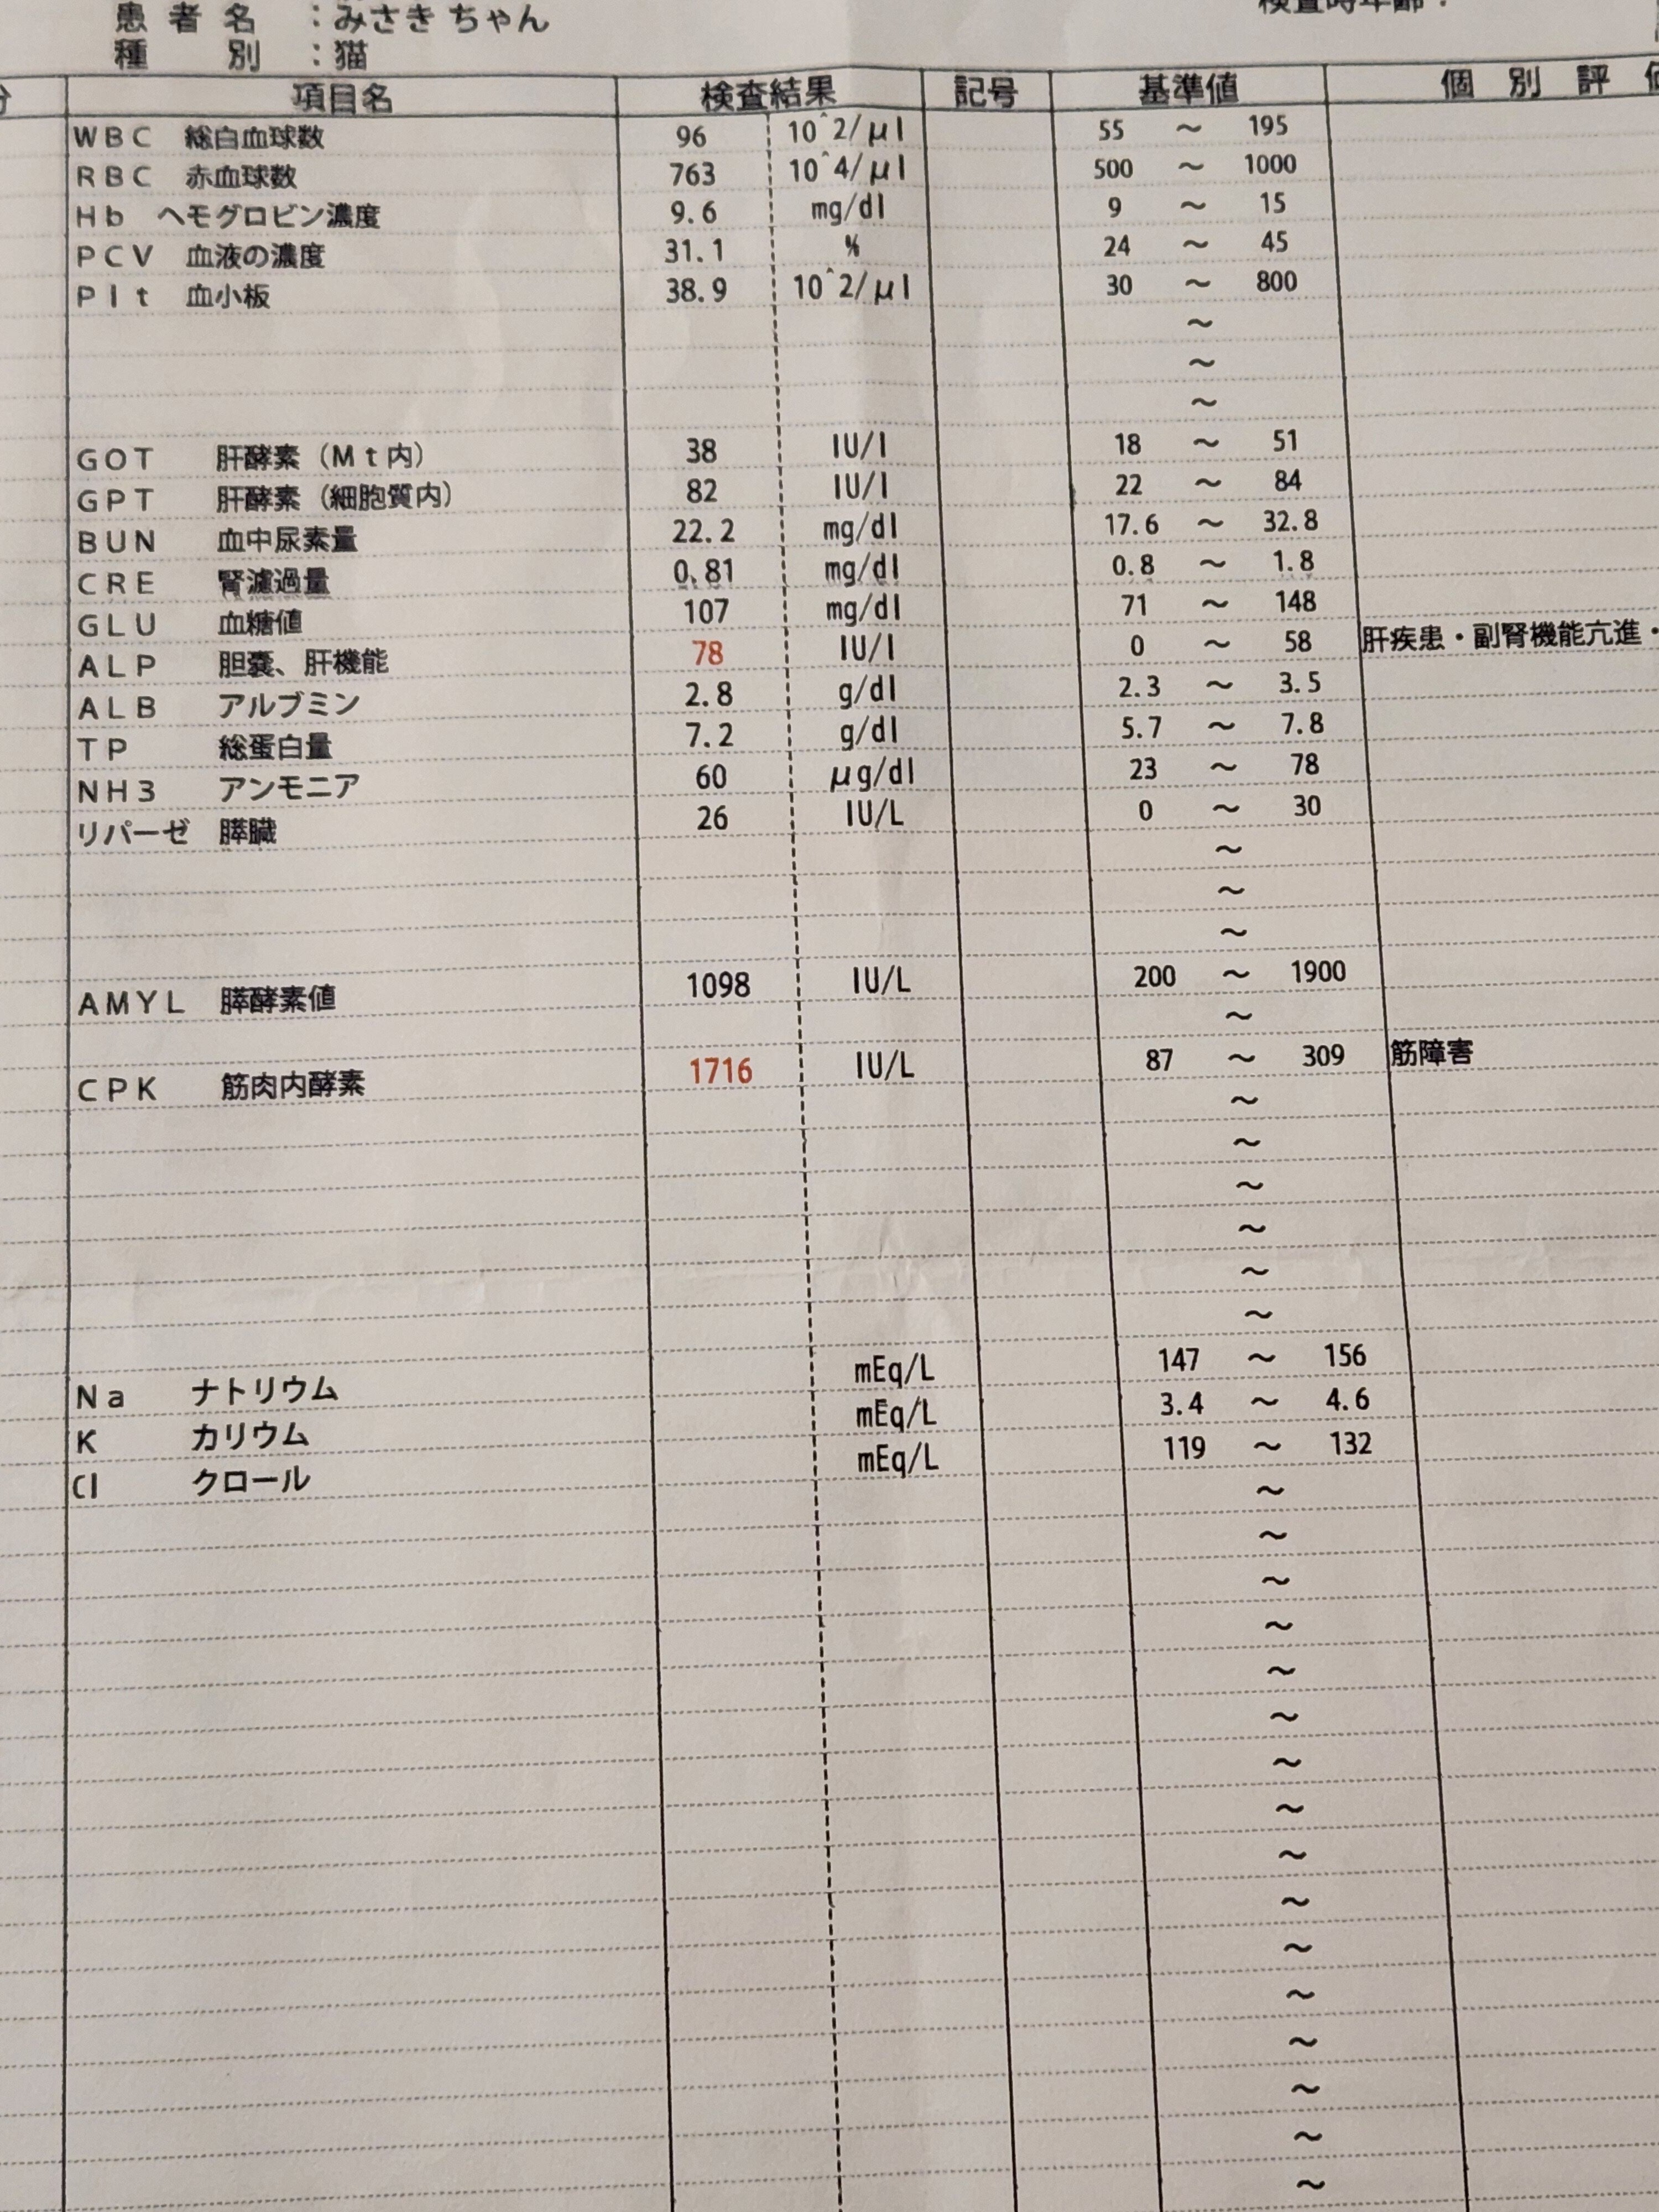 患者名 ：みさき ちゃん
種別 ：猫
項目名 検査結果 記号 基準値 個別評
WBC 総白血球数 96 10^2/μl 55 ～ 195
RBC 赤血球数 763 10^4/μl 500 ～ 1000
Hb ヘモグロビン濃度 9.6 mg/dl 9 ～ 15
PCV 血液の濃度 31.1 % 24 ～ 45
Plt 血小板 38.9 10^2/μl 30 ～ 800
～
～
～
GOT 肝酵素（Mt内） 38 IU/l 18 ～ 51
GPT 肝酵素（細胞質内） 82 IU/l 22 ～ 84
BUN 血中尿素量 22.2 mg/dl 17.6 ～ 32.8
CRE 腎濾過量 0.81 mg/dl 0.8 ～ 1.8
GLU 血糖値 107 mg/dl 71 ～ 148
ALP 胆嚢、肝機能 78 IU/l 0 ～ 58 肝疾患・副腎機能亢進・
ALB アルブミン 2.8 g/dl 2.3 ～ 3.5
TP 総蛋白量 7.2 g/dl 5.7 ～ 7.8
NH3 アンモニア 60 μg/dl 23 ～ 78
リパーゼ 膵臓 26 IU/L 0 ～ 30
～
～
～
AMYL 膵酵素値 1098 IU/L 200 ～ 1900
～
CPK 筋肉内酵素 1716 IU/L 87 ～ 309 筋障害
～
～
～
～
～
～
Na ナトリウム mEq/L 147 ～ 156
K カリウム mEq/L 3.4 ～ 4.6
Cl クロール mEq/L 119 ～ 132
～
～
～
～
～
～
～
～
～
～
～
～
～
～
～
～